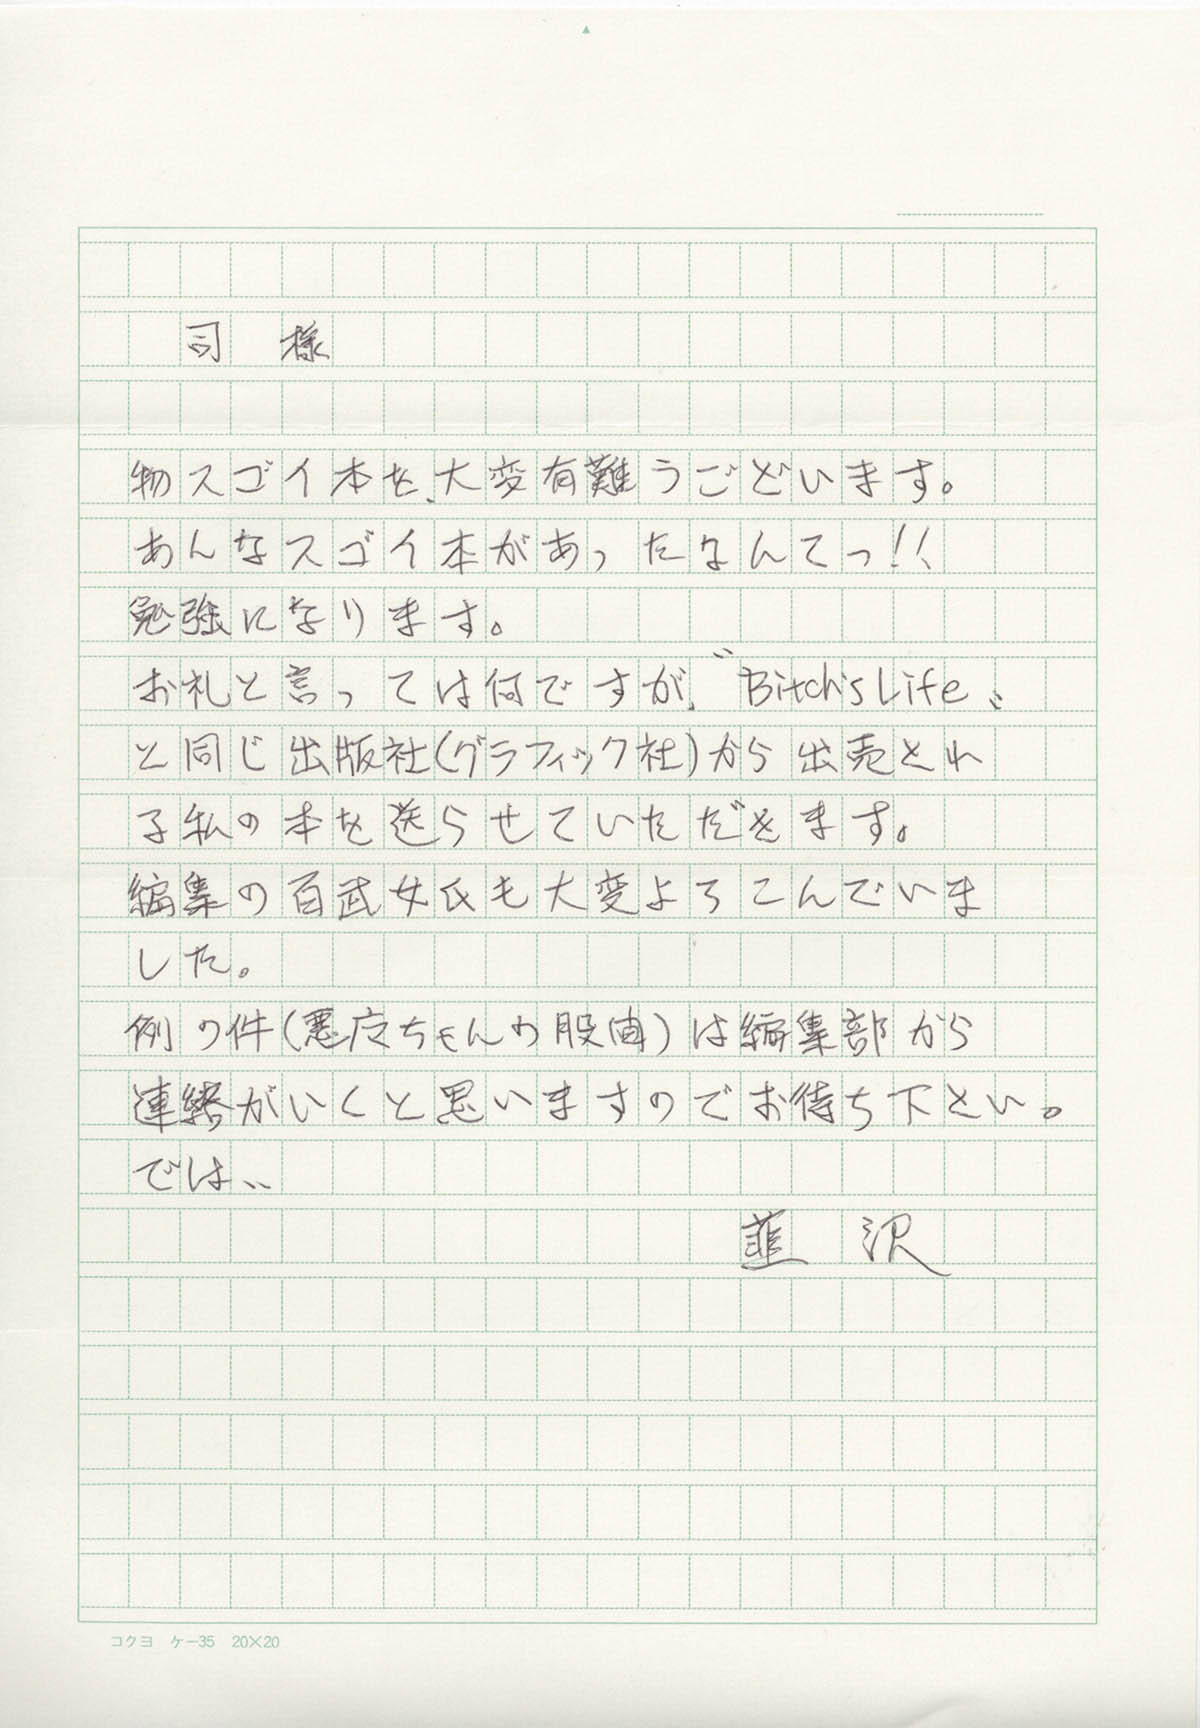 司 様
物スゴイ本を、大変有難うございます。
あんなスゴイ本があったなんてっ!!
勉強になります。
お礼と言っては何ですが、"Bitch's Life"
と同じ出版社(グラフィック社)から出売され
る私の本を送らせていただきます。
編集の百武女氏も大変よろこんでいま
した。
例の件(悪庁ちゃんの股間)は編集部から
連絡がいくと思いますのでお待ち下さい。
では..
韮 沢
コクヨ ケー35 20×20